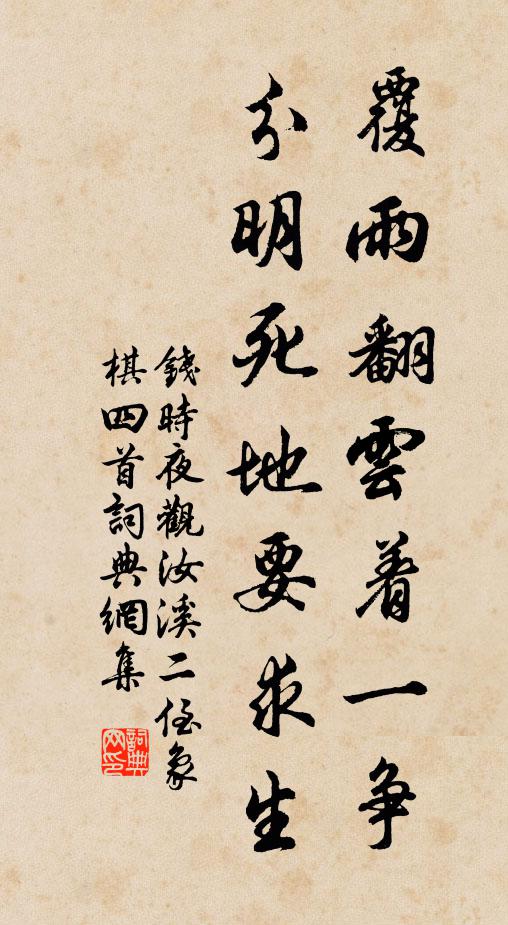 覆雨翻雲着一争
分明死地要求生
錢時夜觀汝溪二侄象
棋四首詞典網集
詞典
网印